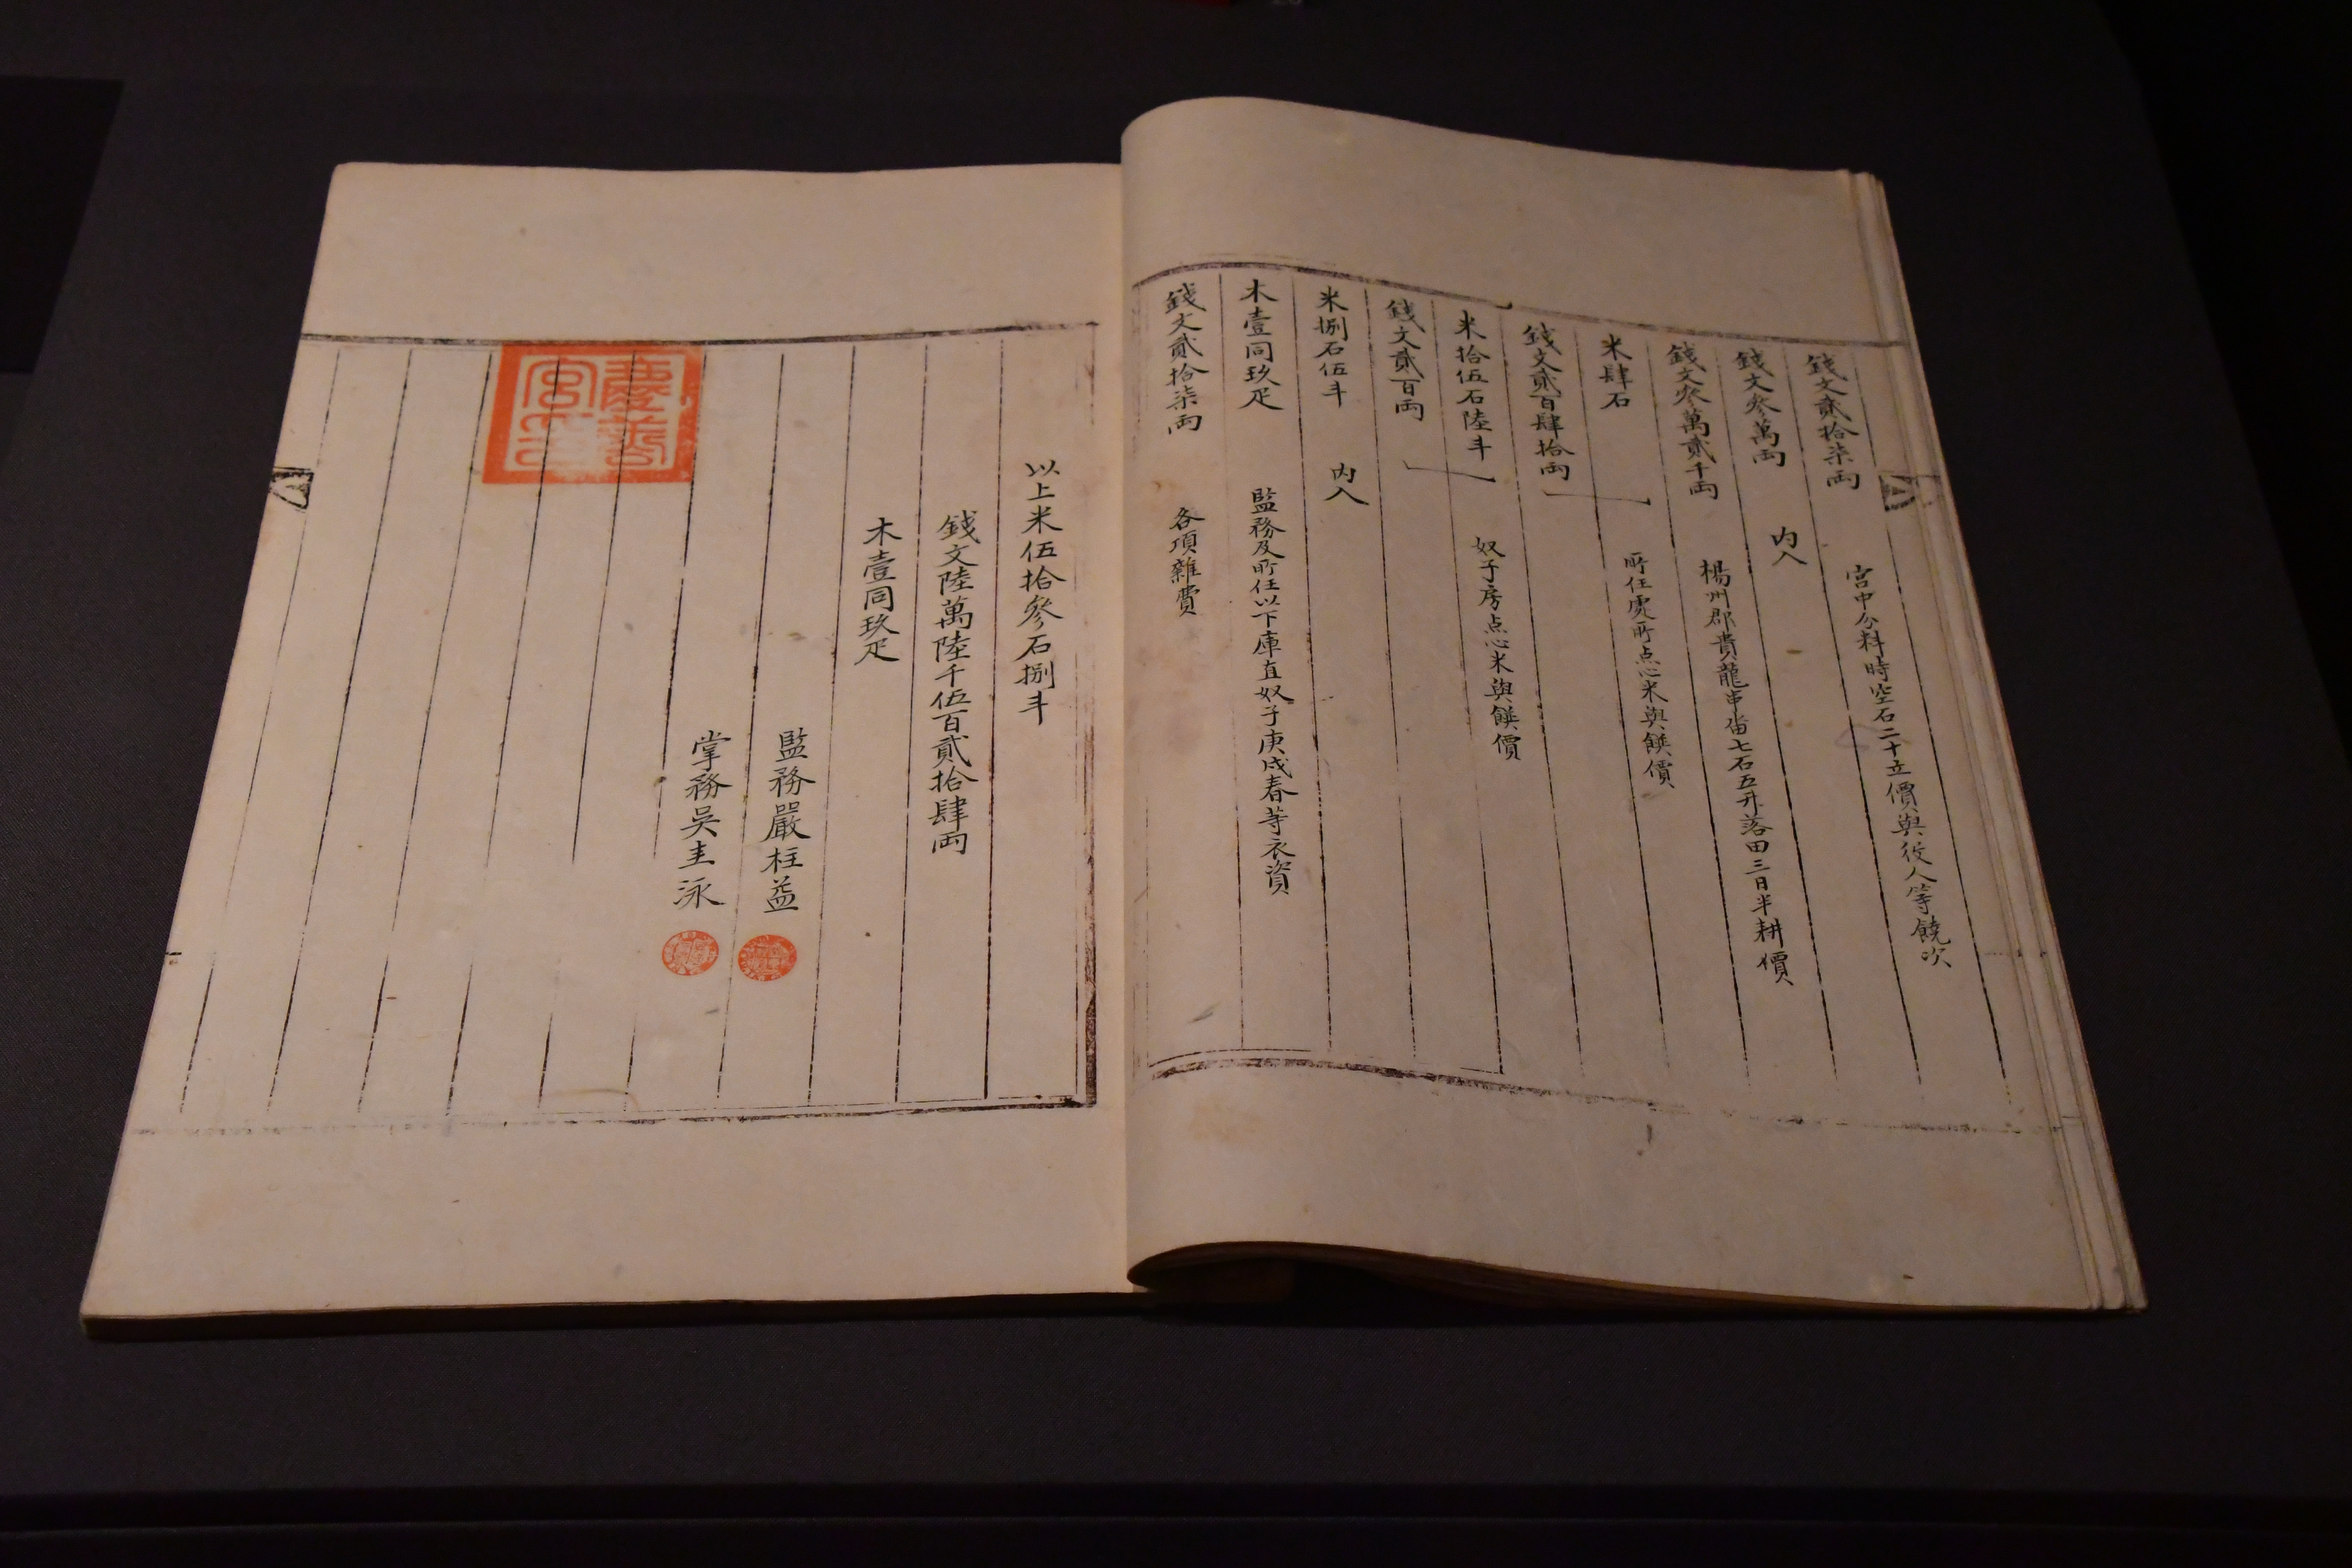 錢文貳拾柒両 宮中分料時空石二十立價與役人等饒次
錢文參萬両 内入
錢文參萬貳千両 楊州郡貴龍串畓七石五升落田三日半耕價
米肆石
錢文貳百肆拾両 所任處所点心米與饌價
米拾伍石陸斗
錢文貳百両 奴子房点心米與饌價
米捌石伍斗 内入
木壹同玖疋 監務及所任以下庫直奴子庚戌春等衣資
錢文貳拾柒両 各項雜費
以上米伍拾參石捌斗
錢文陸萬陸千伍百貳拾肆両
木壹同玖疋
監務嚴柱益
掌務吳圭泳
慶善
宮